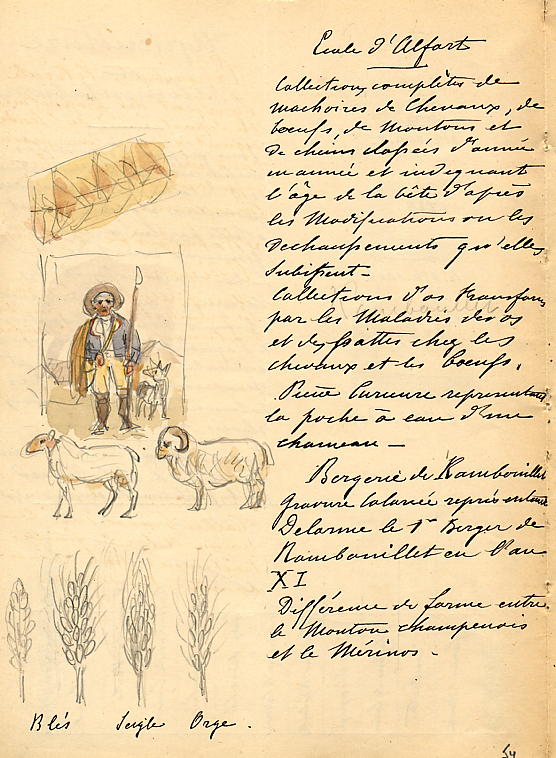 Ecole d'Alfort
Collections complètes de
machoires de Chevaux, de
bœufs, de Moutons et
de chiens classées d'année
en année et indiquant
l'âge de la bête d'après
les Modifications ou les
Dechaussements qu'elles
subissent -
Collections d'os transformés
par les Maladies des os
et des pattes chez les
chevaux et les bœufs.
Pièce Curieuse représentant
la poche à eau d'un
chameau -
Bergerie de Rambouillet
Gravure Coloriée représentant
Delorme le 1er Berger de
Rambouillet en l'an
XI
Différence de forme entre
le Mouton champenois
et le Mérinos -
Blés Seigle Orge.
54